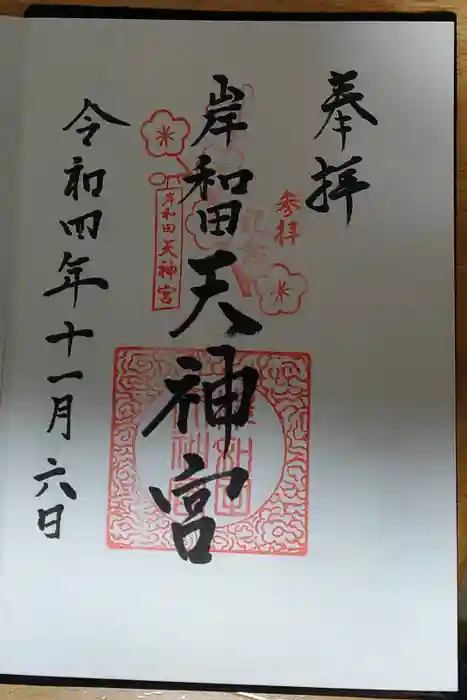 奉拝
参拝
岸和田天神宮
岸和田天神宮
令和四年十一月六日